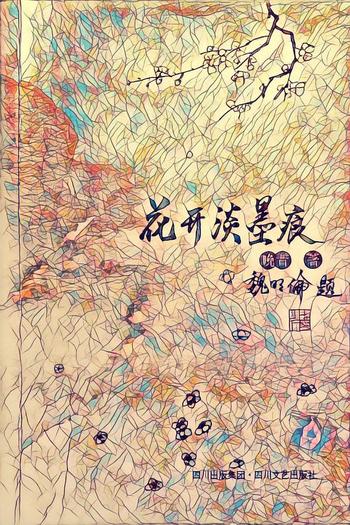 花开淡墨痕
晚晋 著
魏明伦 题
四川出版集团·四川文艺出版社